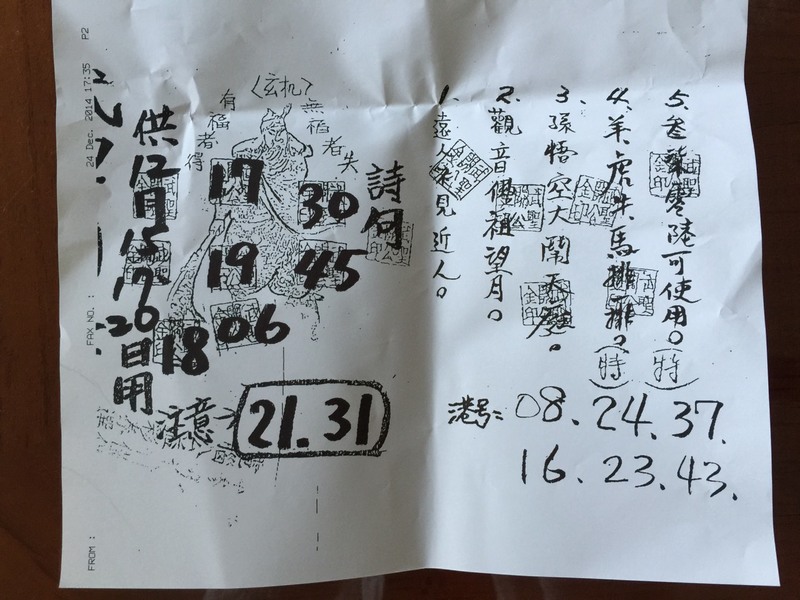 24 Dec. 2014 17:35 P2
FAX NO. :
FROM :
〈玄机〉
有福者得
無福者失
詩句
供12月15.17.20日用
17
30
19
45
06
18
注意→
21.31
1. 遠人來見近人。
2. 觀音佛祖望月。
3. 孫悟空大鬧天
4. 羊虎牛馬排排。(特)
5. 零陸可使用。(特)
港号: 08.24.37.
16.23.43.